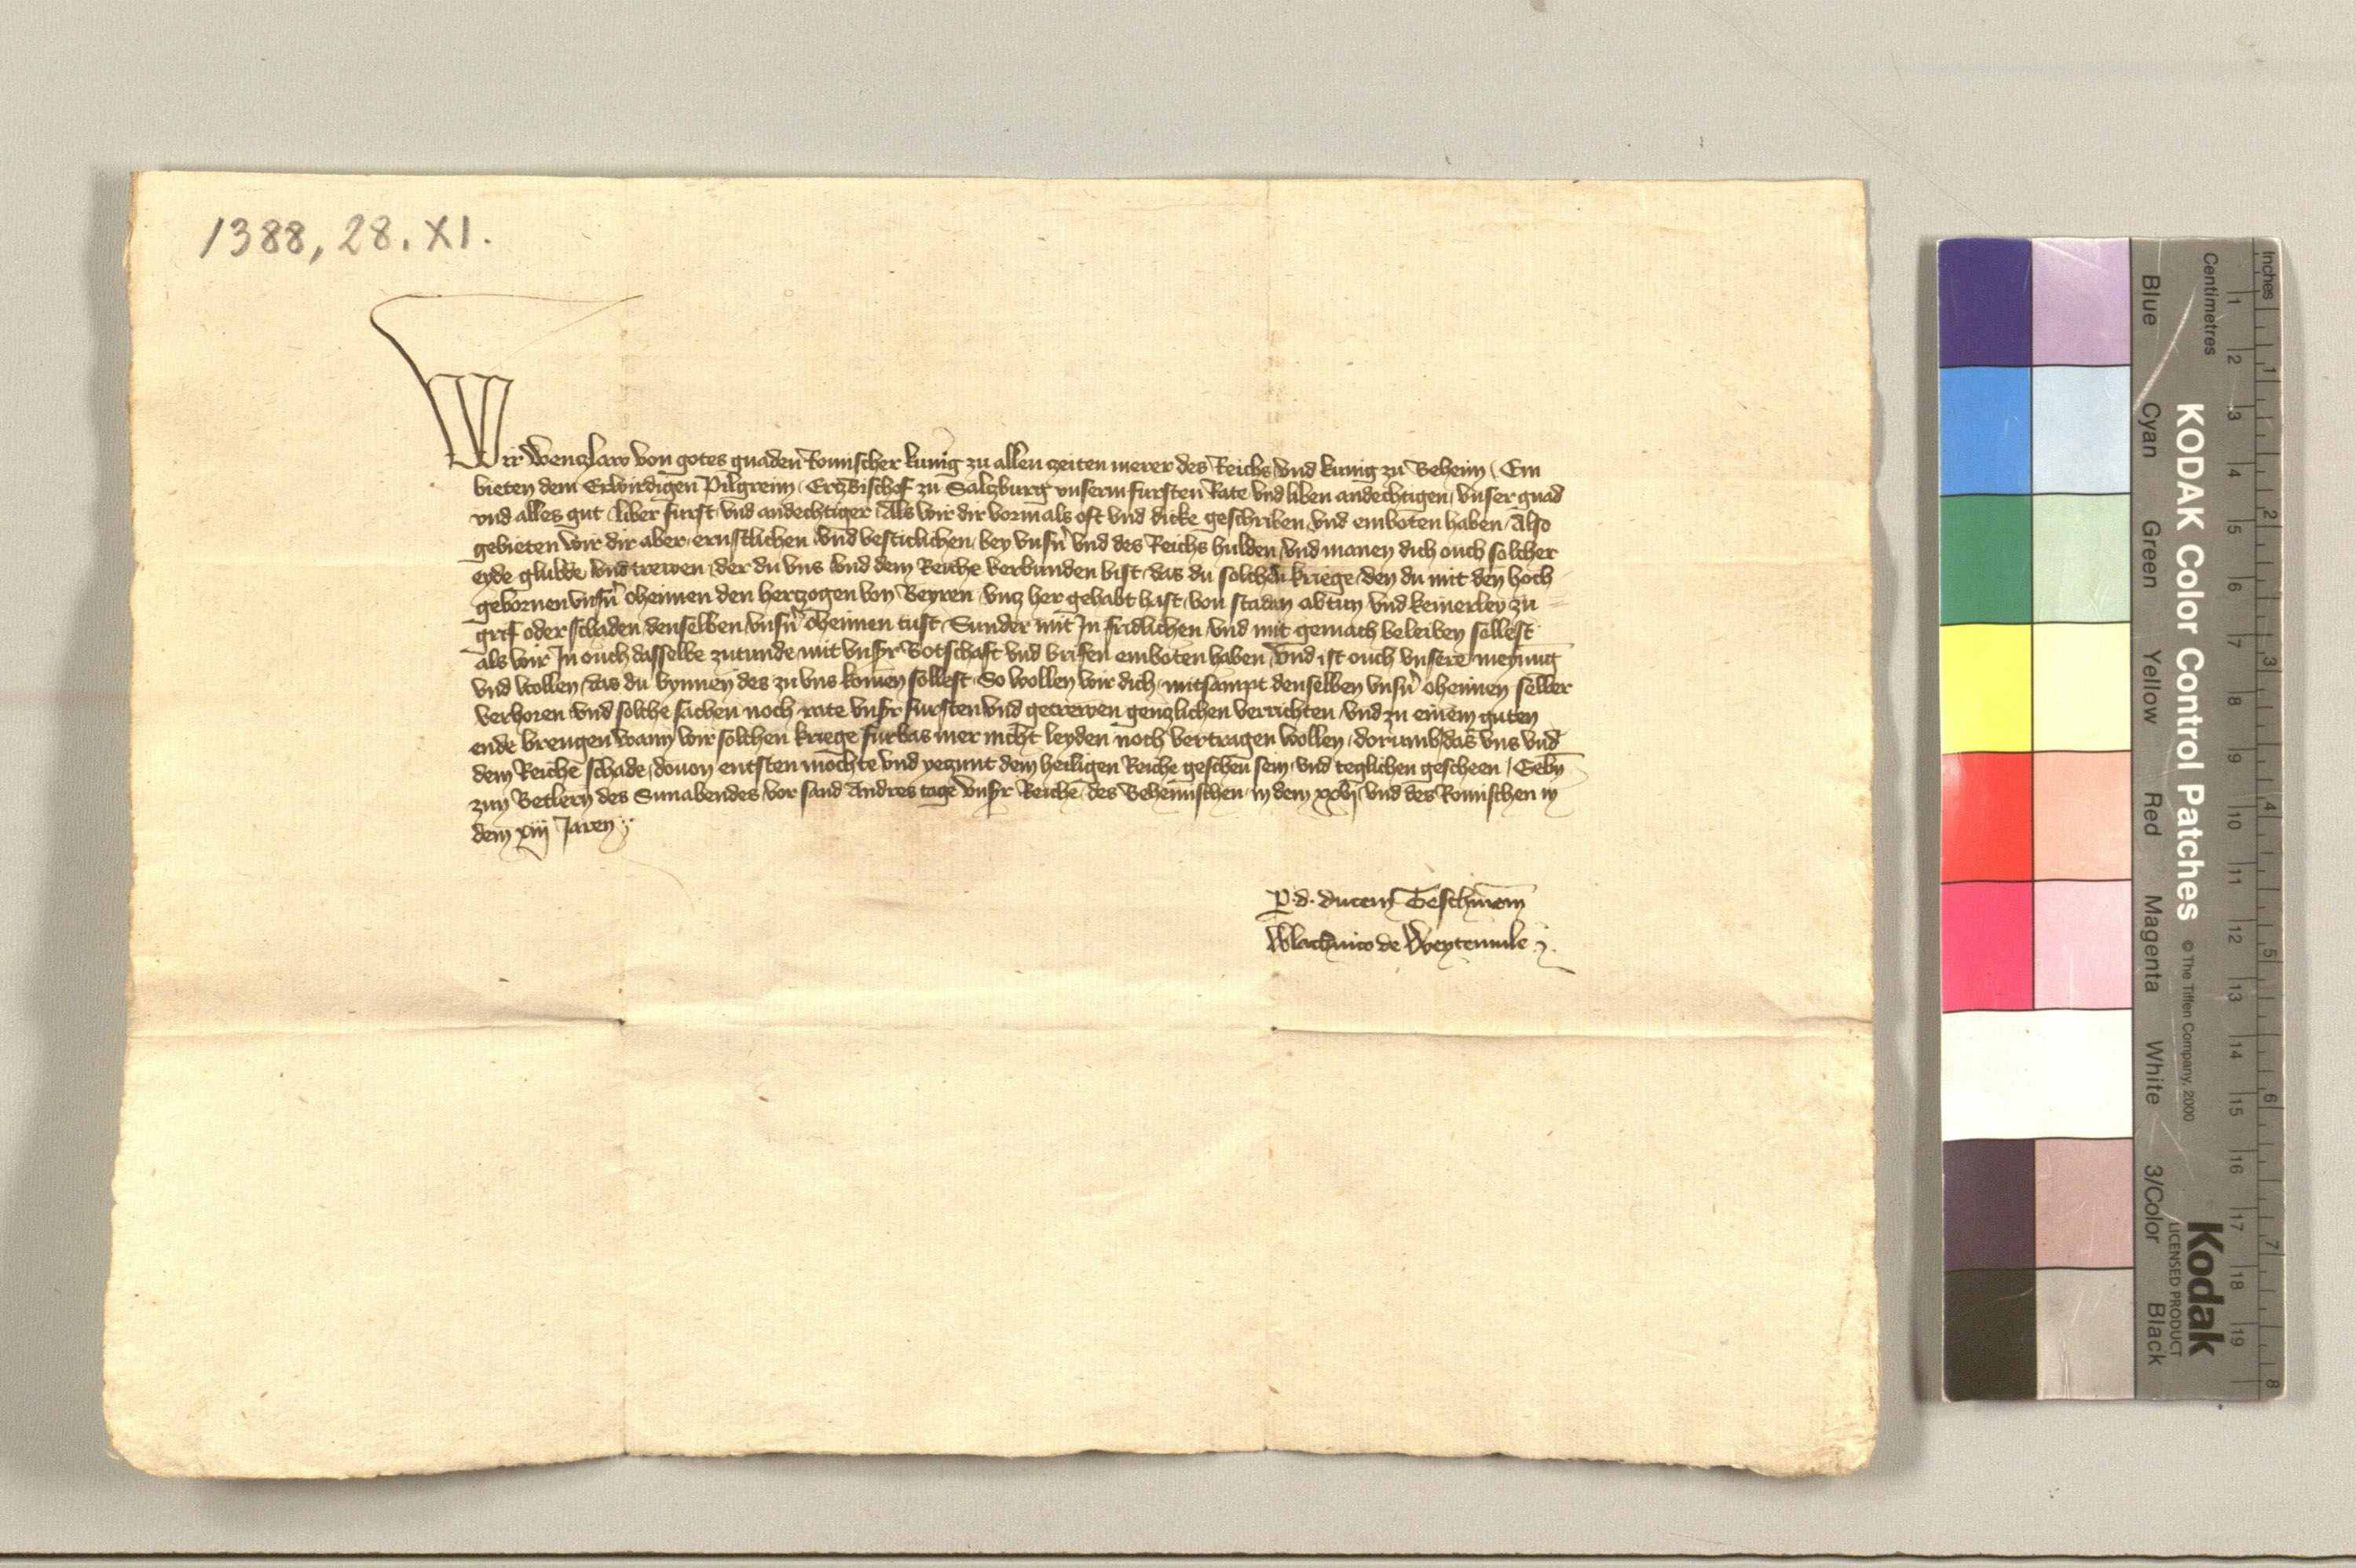 1388, 28. XI.
Wir Wenczlaw von gotes gnaden Romischer kunig zu allen zeiten merer des Reichs vnd kunig zu Beheim / Em
bieten dem Erwirdigen Pilgreim / Erczbischof zu Salczburg vnserm fursten Rate vnd liben andechtigen / vnser gnad
vnd alles gut / liber furst vnd andechtiger / Als wir dir vormals oft vnd dicke geschriben vnd emboten haben / Also
gebieten wir dir aber ernstlichen vnd vesticlichen / bey vnsn vnd des Reichs hulden / vnd manen dich ouch solcher
eyde glubde vnd trewen / der du vns vnd dem Reiche verbunden bist / das du solchen kriege / den du mit den hoch
gebornen vnsn oheimen den herczogen von Beyren vncz her gehabt hast / von stadan abtun vnd keinerley zu
grif oder schaden denselben vnsn oheimen tust / Sunder mit In fridlichen vnd mit gemach beleiben sollest
als wir In ouch dasselbe zutunde mit vnsr Botschaft vnd brifen emboten haben / vnd ist ouch vnsere meynung
vnd wollen / das du bynnen des zu vns komen sollest / So wollen wir dich mitsampt denselben vnsn oheimen selber
verhoren vnd solche sachen noch rate vnsr fursten vnd getrewen genczlichen verrichten / vnd zu einem guten
ende brengen wann wir solchen kriege furbas mer nicht leyden noch vertragen wollen / dorumb das vns vnd
dem Reiche schade / douon entsten mochte vnd yeczunt dem heiligen Reiche gescheen sein / vnd teglichen gescheen / Gebn
zun Betlern des Sunabendes vor sand Andres tage vnsr Reiche / des Behemischen in dem xxvj vnd des Romischen in
dem xiij Jaren
P. d. ducem Teschinem
Wlachnico de Weytenmule
Inches
Centimetres
1 2 3 4 5 6 7 8
1 2 3 4 5 6 7 8 9 10 11 12 13 14 15 16 17 18 19
KODAK Color Control Patches
© The Tiffen Company, 2000
Kodak
LICENSED PRODUCT
Blue Cyan Green Yellow Red Magenta White 3/Color Black